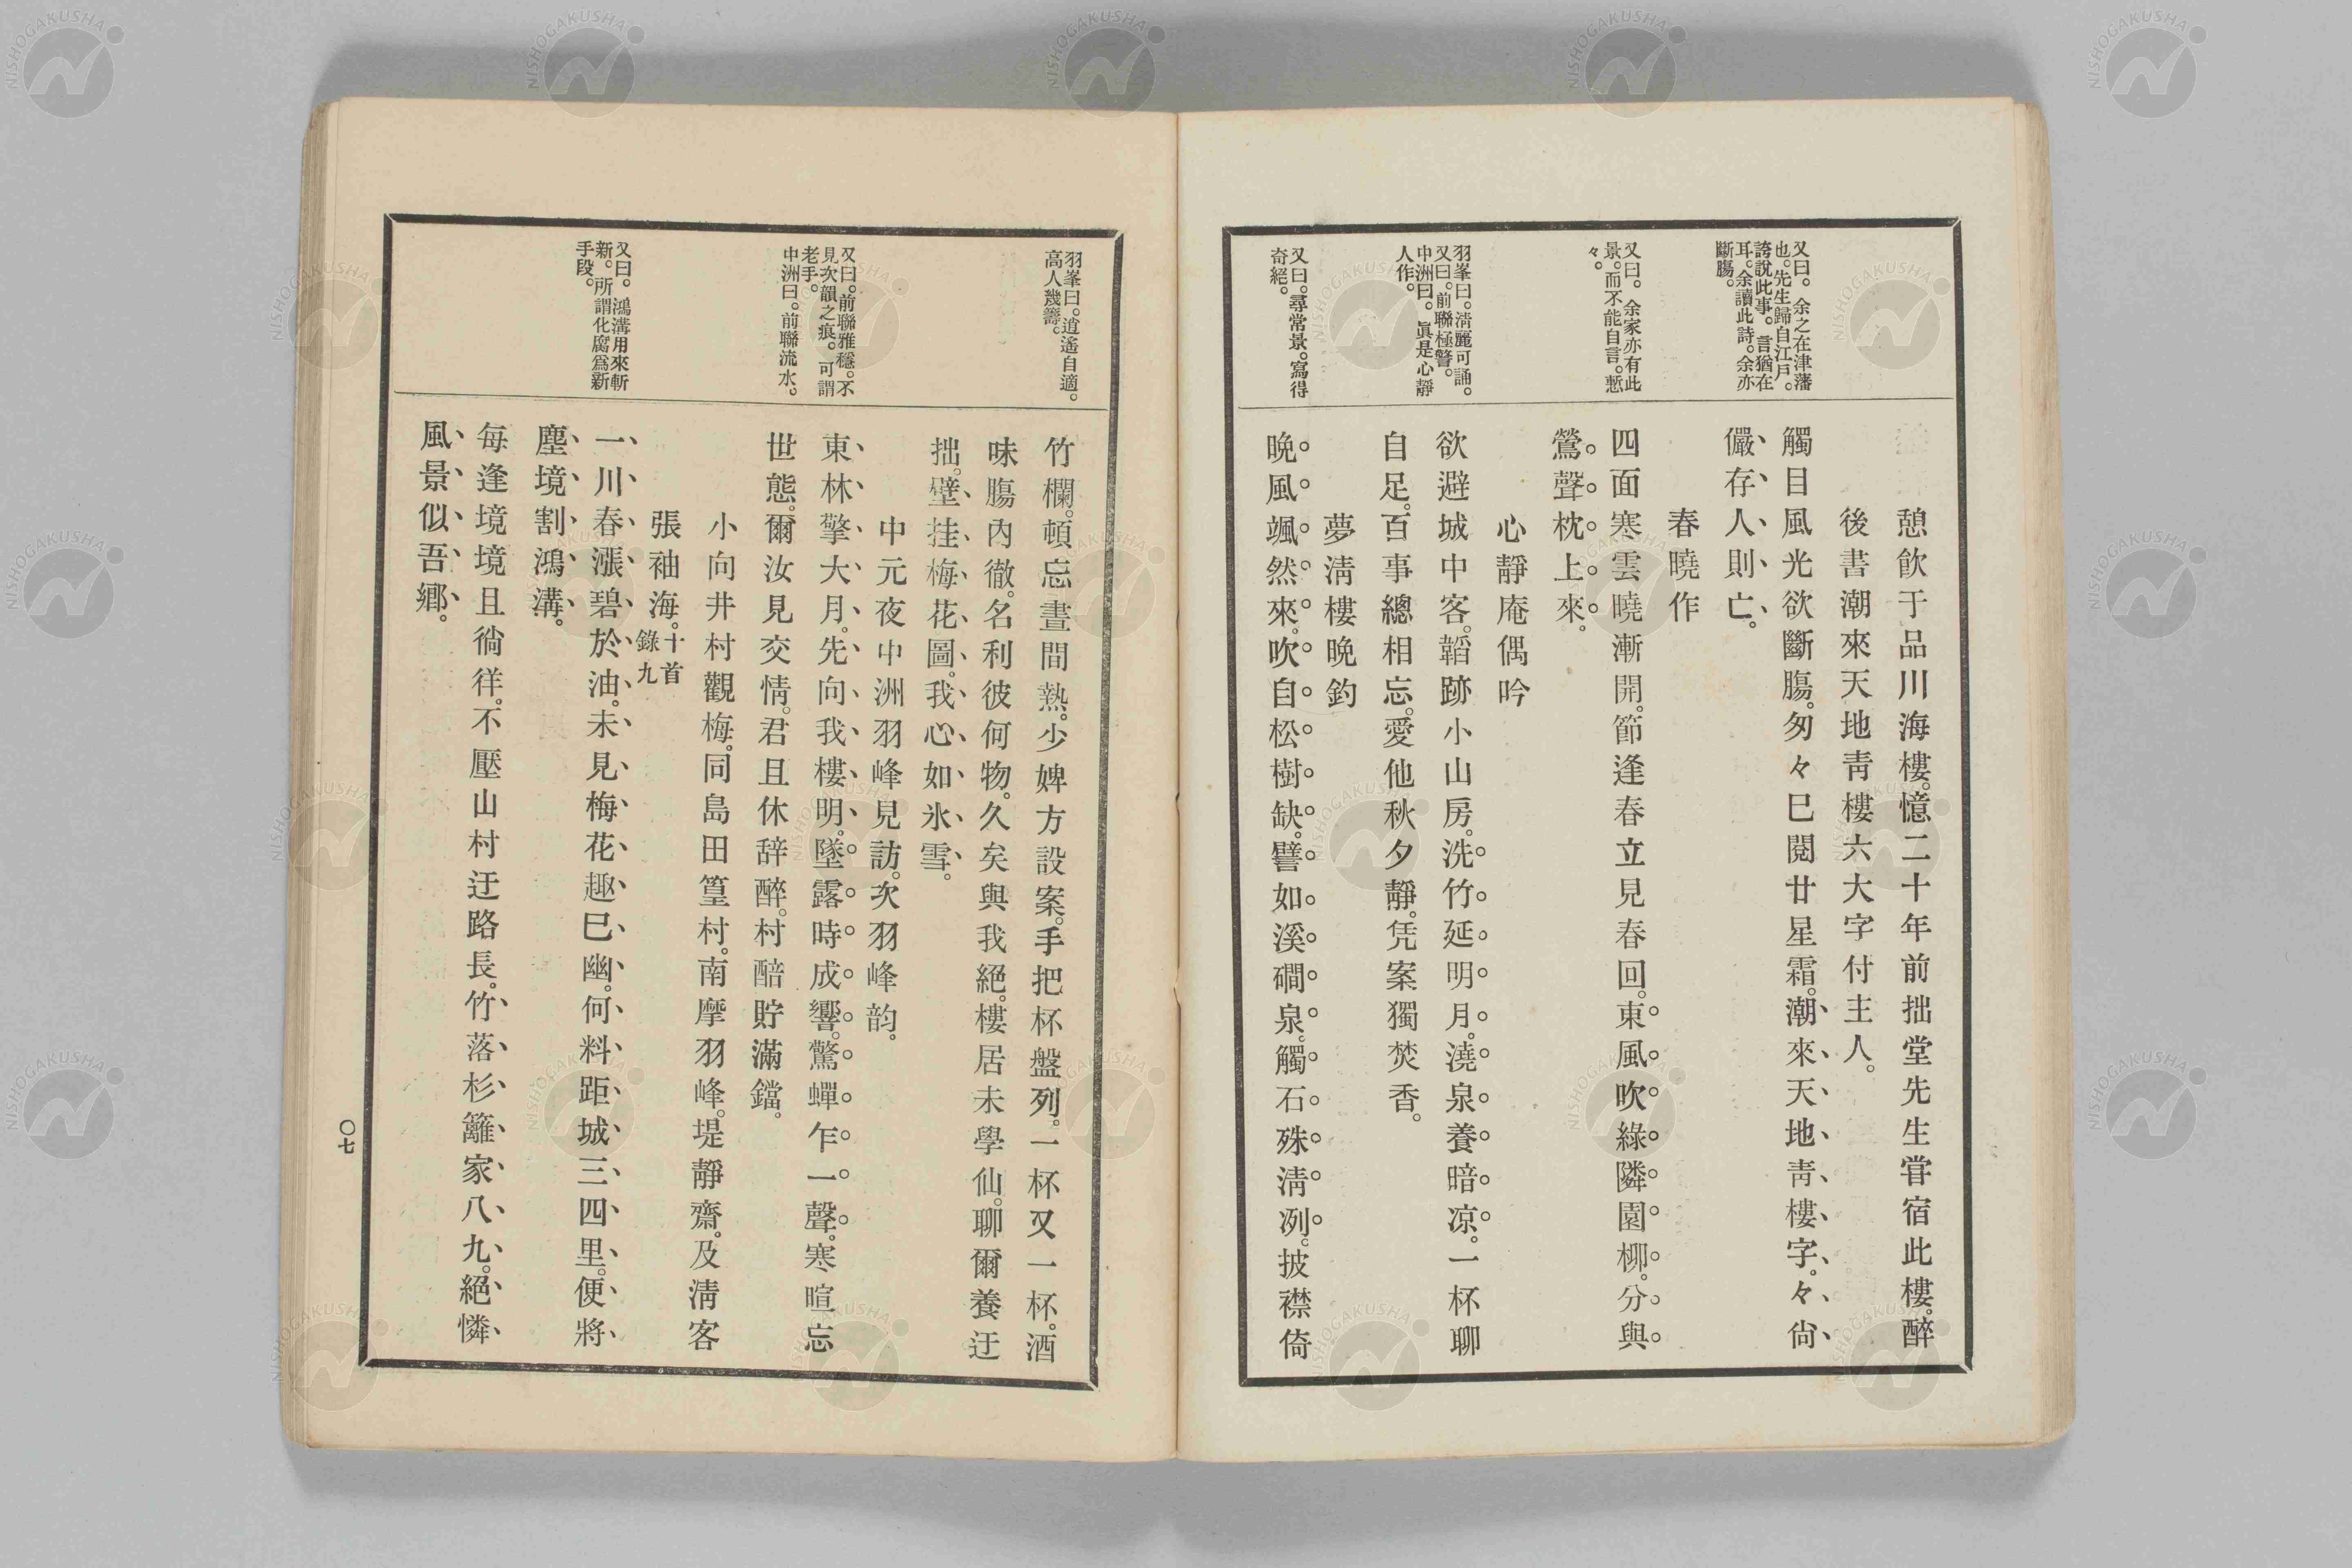 又曰。余之在津藩
也。先生歸自江戶。
誇說此事。言猶在
耳。余讀此詩。余亦
斷膓。
又曰。余家亦有此
景。而不能自言。慙
々。
羽峯曰。淸麗可誦。
又曰。前聯極警。
中洲曰。眞是心靜
人作。
又曰。尋常景。寫得
奇絕。
憩飮于品川海樓。憶二十年前拙堂先生嘗宿此樓。醉
後書潮來天地靑樓六大字付主人。
觸目風光欲斷膓。匆々巳閱廿星霜。潮來天地靑樓字。々尙
儼存人則亡。
春曉作
四面寒雲曉漸開。節逢春立見春回。東風吹綠隣園柳。分與
鶯聲枕上來。
心靜庵偶吟
欲避城中客。韜跡小山房。洗竹延明月。澆泉養暗凉。一杯聊
自足。百事總相忘。愛他秋夕靜。凭案獨焚香。
夢淸樓晚釣
晩風颯然來。吹自松樹缺。譬如溪磵泉。觸石殊淸冽。披襟倚
羽峯曰。逍遙自適。
高人幾籌。
又曰。前聯雅穩。不
見次韻之痕。可謂
老手。
中洲曰。前聯流水。
又曰。鴻溝用來斬
新。所謂化腐爲新
手段。
竹欄。頓忘晝間熱。少婢方設案。手把杯盤列。一杯又一杯。酒
味膓內徹。名利彼何物。久矣與我絕。樓居未學仙。聊爾養迂
拙。壁挂梅花圖。我心如氷雪。
中元夜中洲羽峰見訪。次羽峰韵。
東林擎大月。先向我樓明。墜露時成響。驚蟬乍一聲。寒暄忘
世態。爾汝見交情。君且休辞醉。村醅貯滿鐺。
小向井村觀梅。同島田篁村。南摩羽峰。堤靜齋。及淸客
張袖海。十首錄九
一川春漲碧於油。未見梅花趣巳幽。何料距城三四里。便將
塵境割鴻溝。
每逢境境且徜徉。不壓山村迂路長。竹落杉籬家八九。絕憐
風景似吾鄉。
〇七